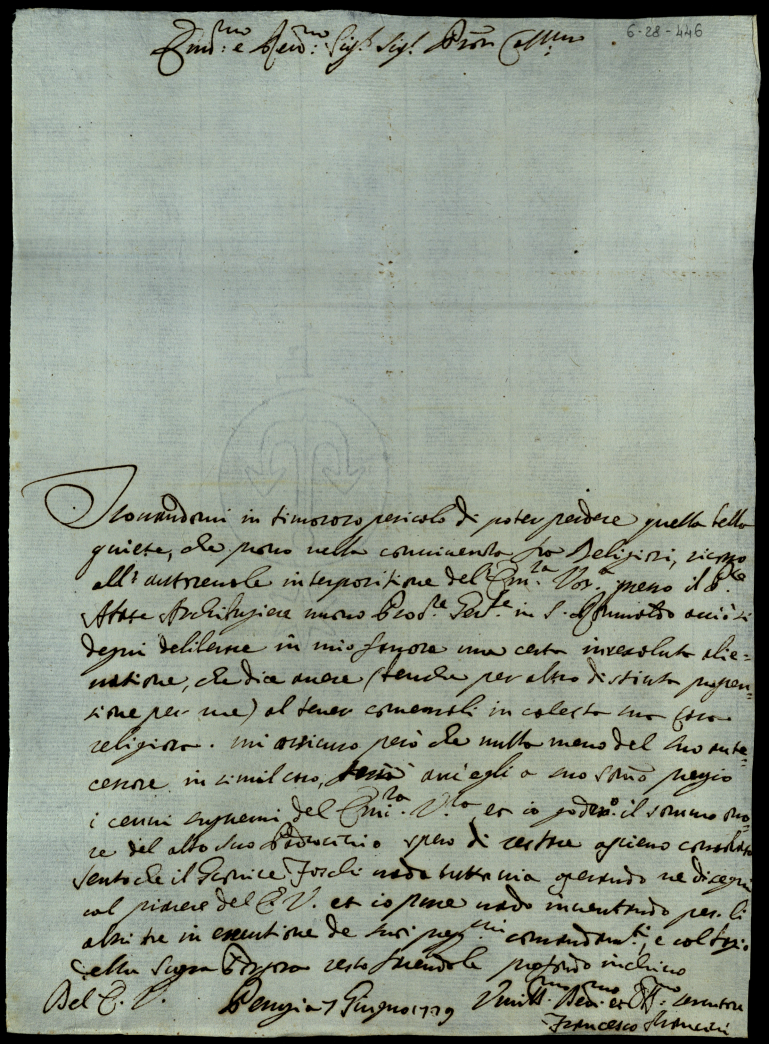 6-28-446
Em.mo e Rev.mo Sig.r Sig.r Pron Col.mo
Trovandomi in timoroso pericolo di poter perdere quella bella
quiete, che provo nella convivenza fra Religiosi, ricorro
all'autorevole interpositione dell'Em.za Vos.a presso il P.re
Abate nuovo in S. Romualdo acciò si
degni deliberare in mio favore una certa irresoluta alie-
natione, che dice avere (benche per altro distinta propen-
sione per me) al tener comensali in cotesta sua Casa
religiosa. mi assicuro però che nulla meno del suo ante-
cessore in simil caso, avrà anch'egli a suo sommo pregio
i cenni supremi del Em.za V.ra et io godrò il sommo ono-
re del alto suo Patrocinio spero di restare appieno consolato
sento che il Foschi vada tuttavia operando ne disegni
col piacere del E. V. et io pure vado inventando per li
altri tre in esecutione de suoi comandam.ti, e col bacio
della Sagra Porpora resto facendole profondo inchino
Del E. V. Perugia 7 Giugno 1729 Umill. Dev. et Obb.mo servitore
Francesco